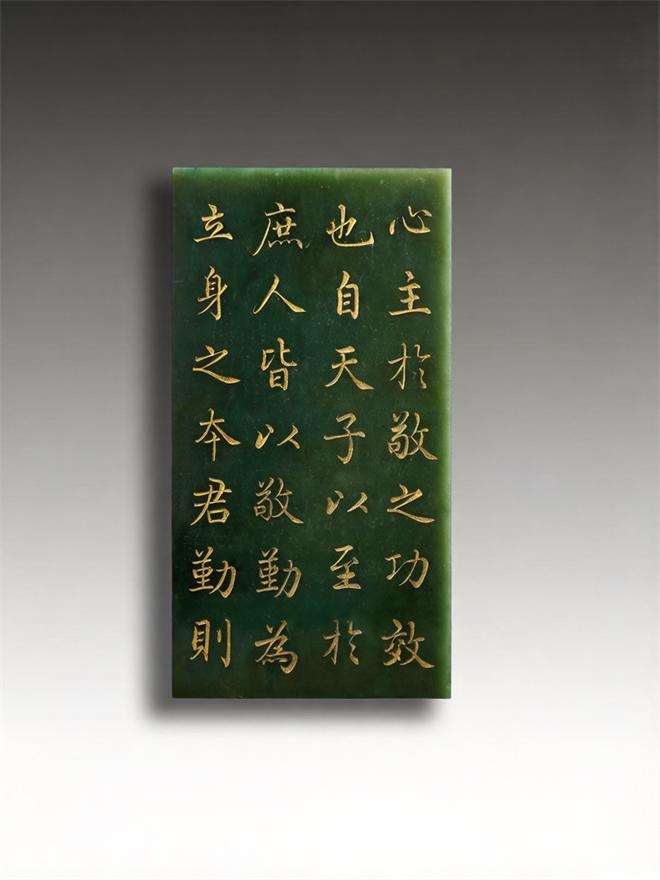 心主於敬之功效
也自天子以至於
庶人皆以敬勤為
立身之本君勤則